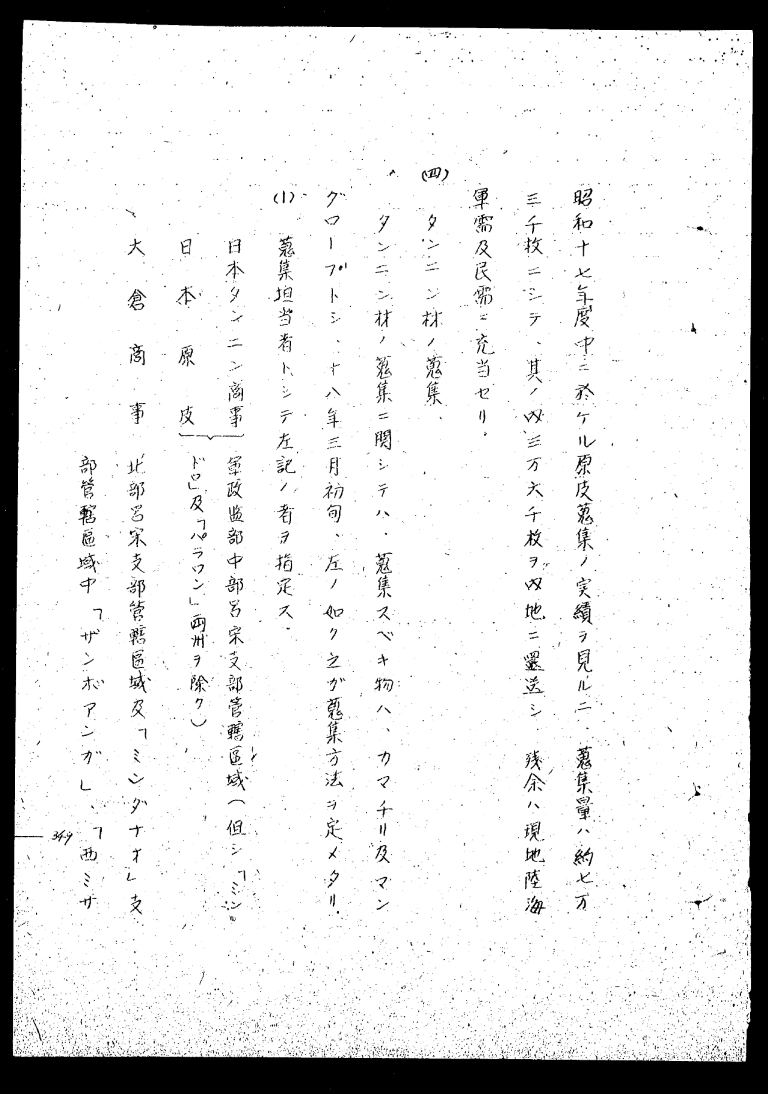 昭和十七年度中ニ於ケル原皮蒐集ノ実績ヲ見ルニ、蒐集量ハ約七万
三千枚ニシテ、其ノ内三万六千枚ヲ内地ニ還送シ、残余ハ現地陸海
軍需及民需ニ充当セリ。
(四) タンニン材ノ蒐集
タンニン材ノ蒐集ニ関シテハ、蒐集スベキ物ハ、カマチリ及マン
グローブトシ、十八年三月初旬、左ノ如ク之ガ蒐集方法ヲ定メタリ。
(1) 蒐集担当者トシテ左記ノ者ヲ指定ス、
日本タンニン商事 軍政監部中部呂宋支部管轄区域(但シ「ミン
日本原皮 ドロ」及「パラワン」両州ヲ除ク)
大倉商事 北部呂宋支部管轄區域及「ミンダナオ」支
部管轄區域中「ザンボアンガ」、「西ミサ
349